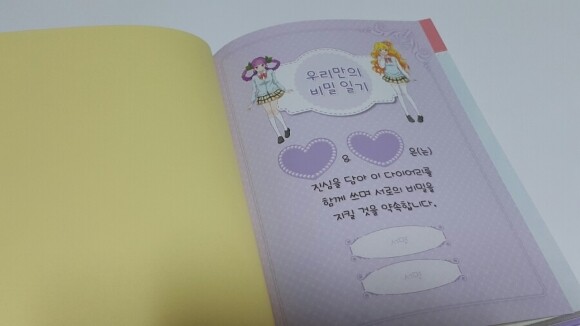 우리만의
비밀 일기
& 은(는)
진심을 담아 이 다이어리를
함께 쓰며 서로의 비밀을
지킬 것을 약속합니다.
서명
서명